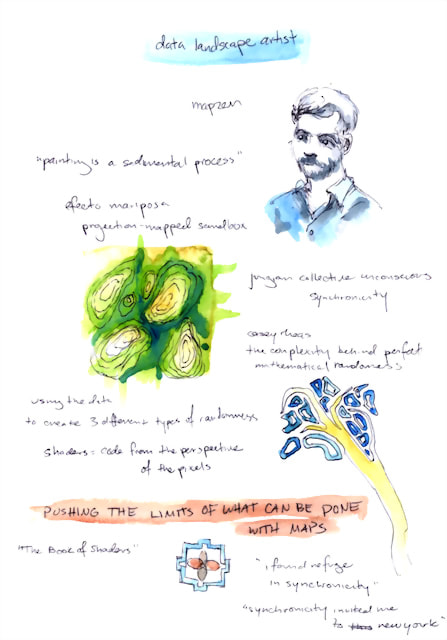 data landscape artist
mapzen
"painting is a sedimental process"
efecto mariposa
projection-mapped sandbox
jungian collective unconscious
synchronicity
casey rheas
the complexity behind perfect
mathematical randomness
using the data
to create 3 different types of randomness
shaders = code from the perspective
of the pixels
PUSHING THE LIMITS OF WHAT CAN BE DONE
WITH MAPS
"The Book of Shaders"
"i found refuge
in synchronicity"
"synchronicity invited me
to new york"